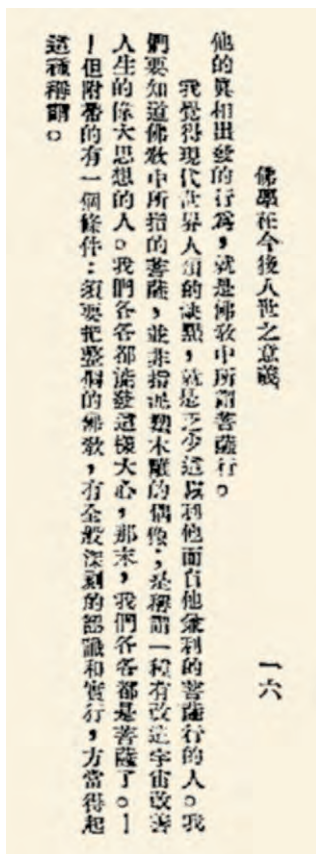 佛學在今後人世之意義　一六
他的眞相出發的行爲，就是佛敎中所謂菩薩行。
我覺得現代世界人類的缺點，就是乏少這以利他而自他兼利的菩薩行的人。我
們要知道佛敎中所指的菩薩，並非指泥塑木雕的偶像，是稱謂一種有改造宇宙改善
人生的偉大思想的人。我們各各都能發這樣大心，那末，我們各各都是菩薩了。—
—但附帶的有一個條件：須要把整個的佛敎，有全般深刻的認識和實行，方當得起
這種稱謂。